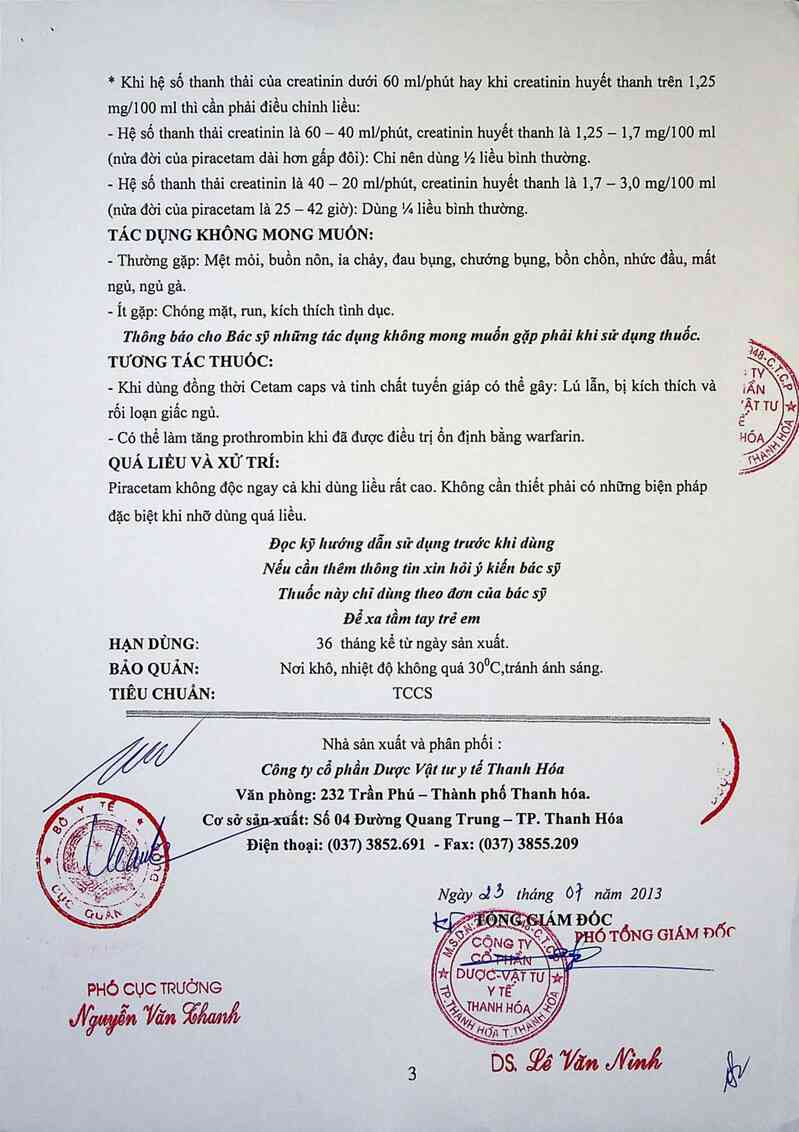 * Khi hệ số thanh thải của creatinin dưới 60 ml/phút hay khi creatinin huyết thanh trên 1,25
mg/100 ml thì cần phải điều chỉnh liều:
- Hệ số thanh thải creatinin là 60 – 40 ml/phút, creatinin huyết thanh là 1,25 – 1,7 mg/100 ml
(nửa đời của piracetam dài hơn gấp đôi): Chỉ nên dùng ½ liều bình thường.
- Hệ số thanh thải creatinin là 40 – 20 ml/phút, creatinin huyết thanh là 1,7 – 3,0 mg/100 ml
(nửa đời của piracetam là 25 – 42 giờ): Dùng ¼ liều bình thường.
TÁC DỤNG KHÔNG MONG MUỐN:
- Thường gặp: Mệt mỏi, buồn nôn, ỉa chảy, đau bụng, chướng bụng, bồn chồn, nhức đầu, mất
ngủ, ngủ gà.
- Ít gặp: Chóng mặt, run, kích thích tình dục.
Thông báo cho Bác sỹ những tác dụng không mong muốn gặp phải khi sử dụng thuốc.
TƯƠNG TÁC THUỐC:
- Khi dùng đồng thời Cetam caps và tinh chất tuyến giáp có thể gây: Lú lẫn, bị kích thích và
rối loạn giấc ngủ.
- Có thể làm tăng prothrombin khi đã được điều trị ổn định bằng warfarin.
QUÁ LIỀU VÀ XỬ TRÍ:
Piracetam không độc ngay cả khi dùng liều rất cao. Không cần thiết phải có những biện pháp
đặc biệt khi nhỡ dùng quá liều.
Đọc kỹ hướng dẫn sử dụng trước khi dùng
Nếu cần thêm thông tin xin hỏi ý kiến bác sỹ
Thuốc này chỉ dùng theo đơn của bác sỹ
Để xa tầm tay trẻ em
HẠN DÙNG: 36 tháng kể từ ngày sản xuất.
BẢO QUẢN: Nơi khô, nhiệt độ không quá 30⁰C,tránh ánh sáng.
TIÊU CHUẨN: TCCS
Nhà sản xuất và phân phối :
Công ty cổ phần Dược Vật tư y tế Thanh Hóa
Văn phòng: 232 Trần Phú – Thành phố Thanh hóa.
Cơ sở sản xuất: Số 04 Đường Quang Trung – TP. Thanh Hóa
Điện thoại: (037) 3852.691 - Fax: (037) 3855.209
BỘ Y TẾ
CỤC QUẢN LÝ DƯỢC
Ngày 23 tháng 07 năm 2013
KT TỔNG GIÁM ĐỐC
PHÓ TỔNG GIÁM ĐỐC
CÔNG TY
CỔ PHẦN
DƯỢC-VẬT TƯ
Y TẾ
THANH HÓA
TP.THANH HÓA T.THANH HÓA
PHÓ CỤC TRƯỞNG
Nguyễn Văn Thanh
DS. Lê Văn Ninh
3